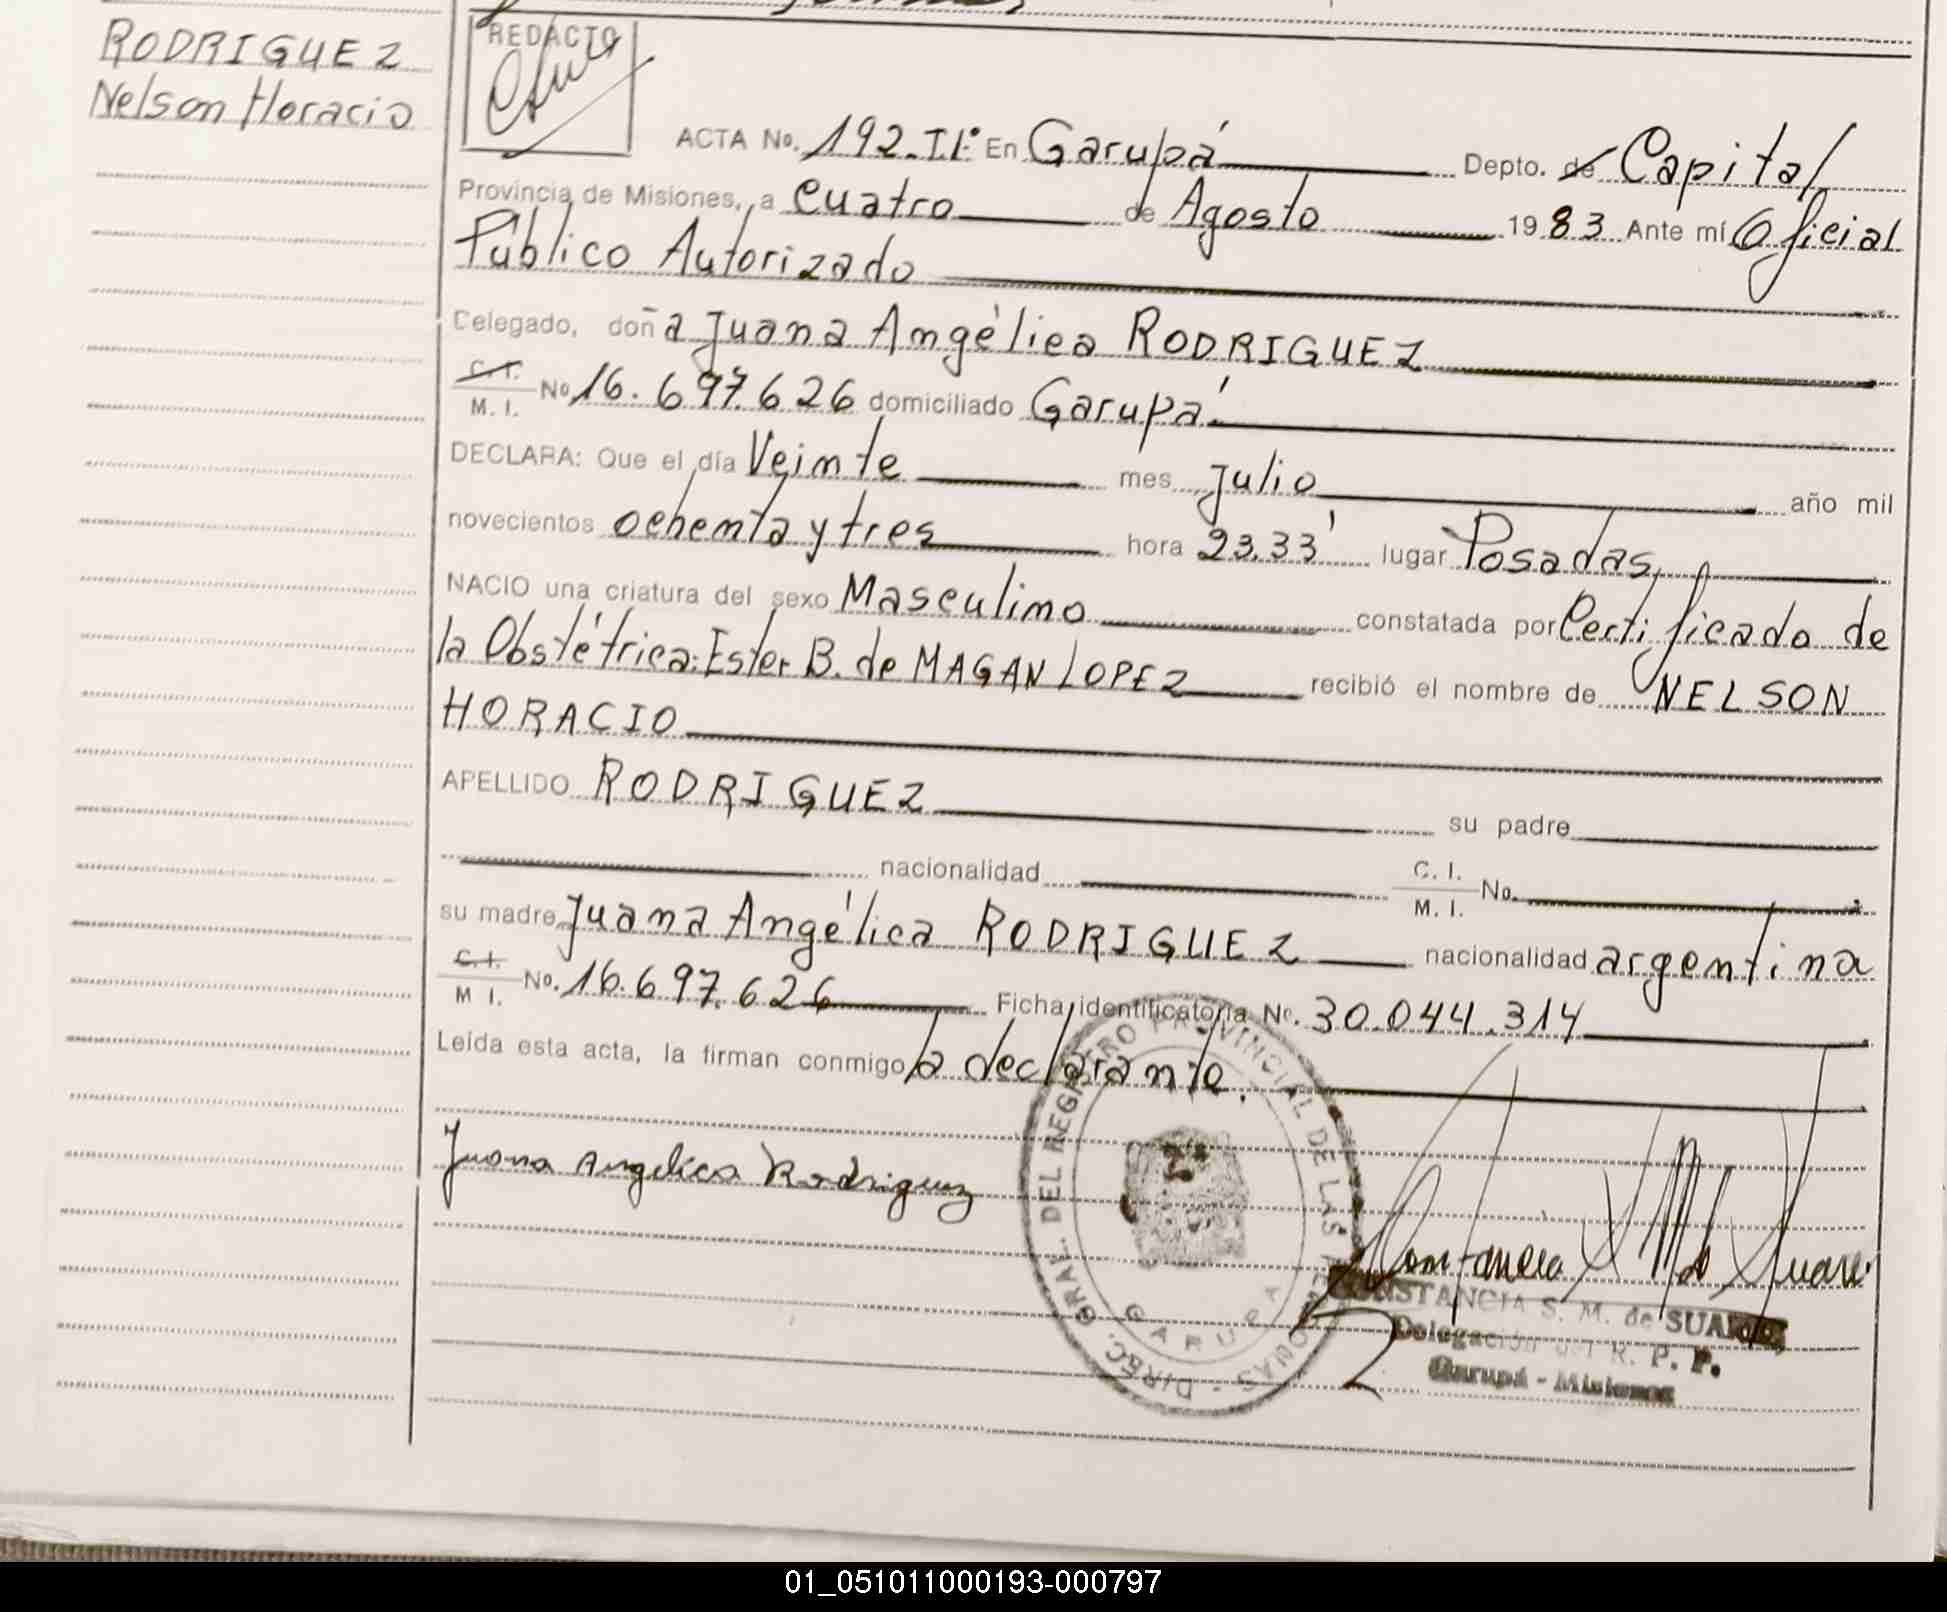 RODRIGUEZ
Nelson Horacio
REDACTO
ACTA No. 192-II° En Garupá Depto. de Capital
Provincia de Misiones, a cuatro de Agosto 1983 Ante mí Oficial
Público Autorizado
Celegado, doña Juana Angélica RODRIGUEZ
C.I.
M. I. No 16.697.626 domiciliado Garupá
DECLARA: Que el día Veinte mes Julio año mil
novecientos ochenta y tres hora 23.33' lugar Posadas
NACIO una criatura del sexo Masculino constatada por Certificado de
la Obstétrica: Ester B. de MAGAN LOPEZ recibió el nombre de NELSON
HORACIO
APELLIDO RODRIGUEZ su padre
nacionalidad C. I.
M. I. No.
su madre Juana Angélica RODRIGUEZ nacionalidad argentina
C.I.
M I. No. 16.697.626 Ficha identificatoria Nº. 30.044.314
Leída esta acta, la firman conmigo la declarante.
Juana Angelica Rodriguez
DIREC. GRAL. DEL REGISTRO PROVINCIAL DE LAS PERSONAS
GARUPA
CONSTANCIA S. M. de SUAREZ
Delegación del R. P. P.
Garupá - Misiones
01_051011000193-000797